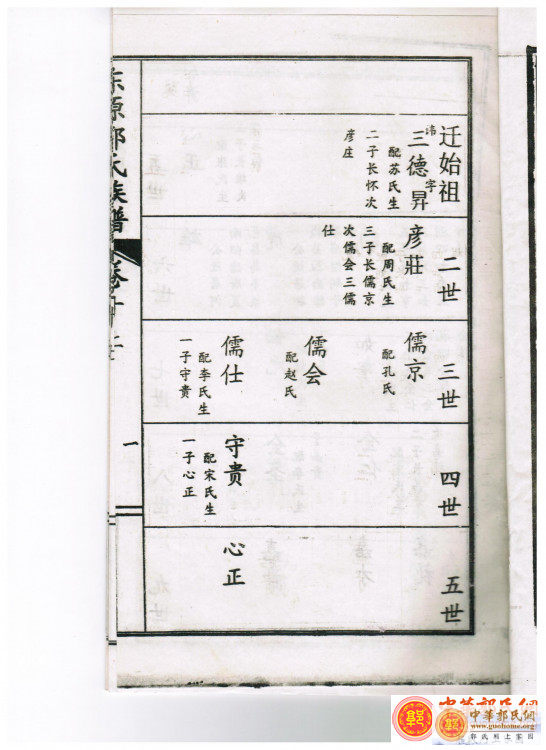 迁始祖
讳三字德昇
配苏氏生
二子长怀次
彦庄
二世
彦莊
配周氏生
三子长儒京
次儒会三儒
仕
三世
儒京
配孔氏
儒会
配赵氏
儒仕
配李氏生
一子守贵
四世
守贵
配宋氏生
一子心正
五世
心正
东原郭氏族谱
卷十二
一
中華郭氏網
www.guohome.org
郭氏网上家园